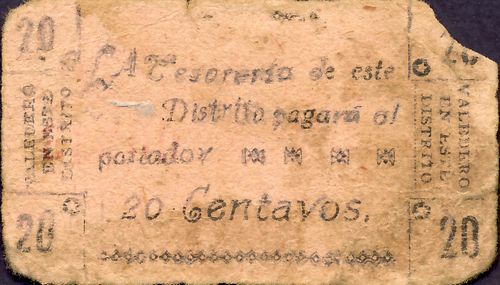 20
VALEDERO
EN ESTE
DISTRITO
20
LA Tesorería de este
Distrito pagará al
portador
20 Centavos.
20
VALEDERO
EN ESTE
DISTRITO
20